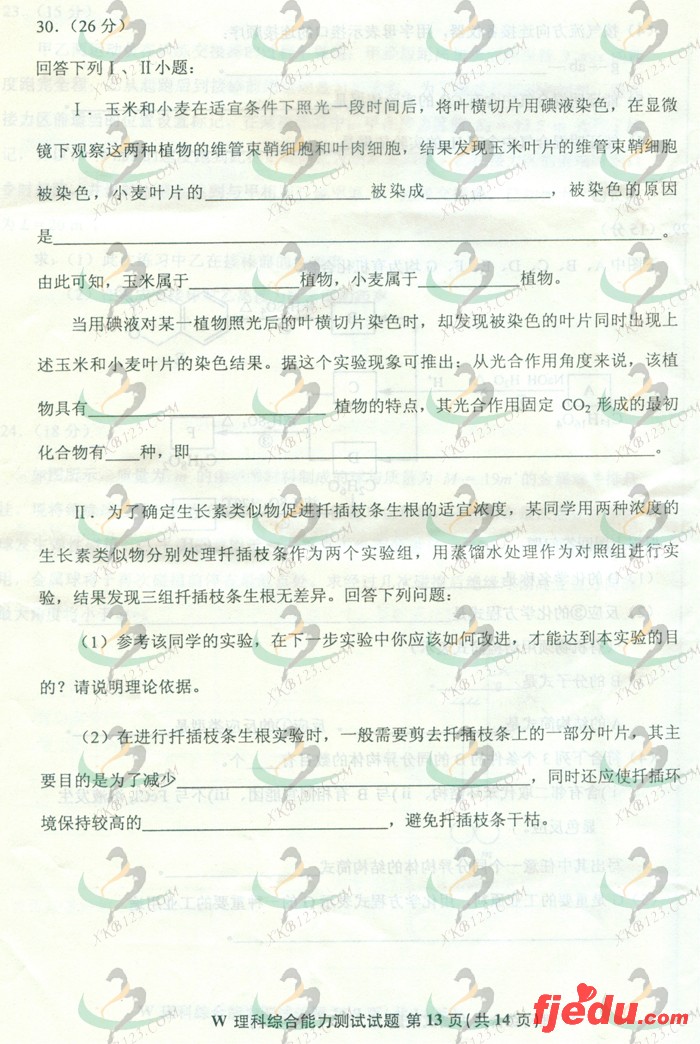 30.（26 分）
回答下列Ⅰ、Ⅱ小题：
Ⅰ．玉米和小麦在适宜条件下照光一段时间后，将叶横切片用碘液染色，在显微
镜下观察这两种植物的维管束鞘细胞和叶肉细胞，结果发现玉米叶片的维管束鞘细胞
被染色，小麦叶片的________________被染成____________，被染色的原因
是____________________________________________________________。
由此可知，玉米属于___________植物，小麦属于__________植物。
当用碘液对某一植物照光后的叶横切片染色时，却发现被染色的叶片同时出现上
述玉米和小麦叶片的染色结果。据这个实验现象可推出：从光合作用角度来说，该植
物具有________________________ 植物的特点，其光合作用固定 CO₂ 形成的最初
化合物有____种，即______________________________________________。
Ⅱ．为了确定生长素类似物促进扦插枝条生根的适宜浓度，某同学用两种浓度的
生长素类似物分别处理扦插枝条作为两个实验组，用蒸馏水处理作为对照组进行实
验，结果发现三组扦插枝条生根无差异。回答下列问题：
（1）参考该同学的实验，在下一步实验中你应该如何改进，才能达到本实验的目
的？请说明理论依据。
（2）在进行扦插枝条生根实验时，一般需要剪去扦插枝条上的一部分叶片，其主
要目的是为了减少___________________________________，同时还应使扦插环
境保持较高的________________________，避免扦插枝条干枯。
W 理科综合能力测试试题 第 13 页(共 14 页)
fjedu.com
XKB123.COM